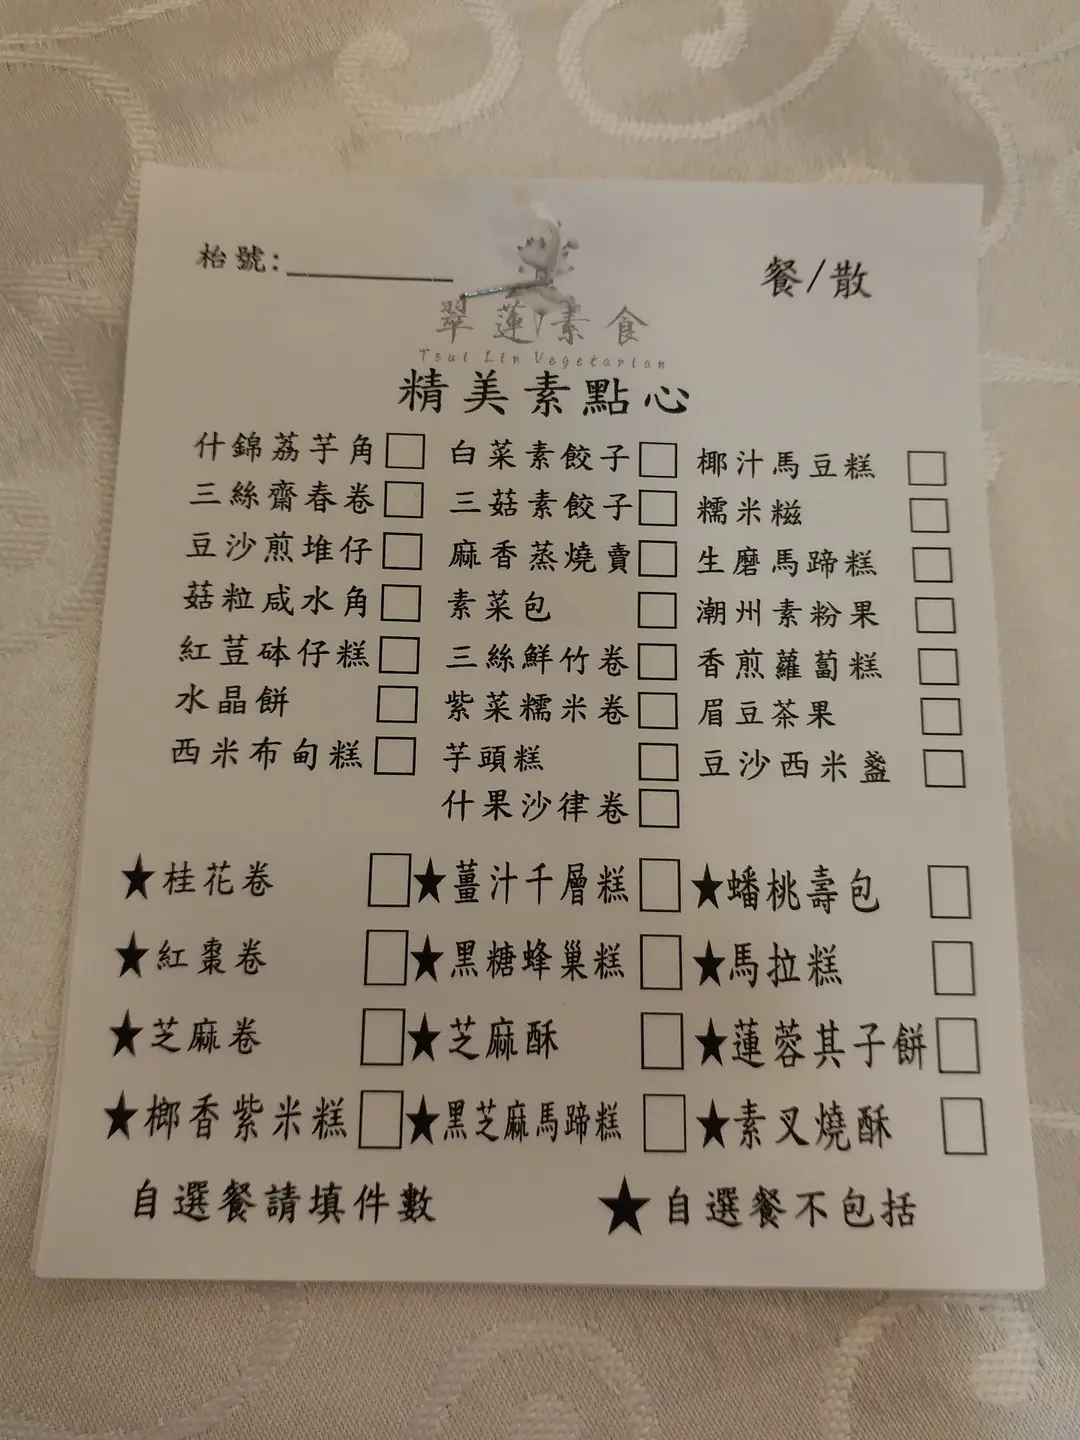 枱號:
餐/散
翠蓮素食
Tsui Lin Vegetarian
精美素點心
什錦荔芋角 白菜素餃子 椰汁馬豆糕
三絲齋春卷 三菇素餃子 糯米糍
豆沙煎堆仔 麻香蒸燒賣 生磨馬蹄糕
菇粒咸水角 素菜包 潮州素粉果
紅荳砵仔糕 三絲鮮竹卷 香煎蘿蔔糕
水晶餅 紫菜糯米卷 眉豆茶果
西米布甸糕 芋頭糕 豆沙西米盞
什果沙律卷
★桂花卷 ★薑汁千層糕 ★蟠桃壽包
★紅棗卷 ★黑糖蜂巢糕 ★馬拉糕
★芝麻卷 ★芝麻酥 ★蓮蓉其子餅
★椰香紫米糕 ★黑芝麻馬蹄糕 ★素叉燒酥
自選餐請填件數 ★自選餐不包括